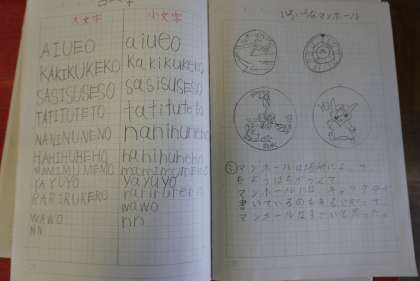 大文字 小文字
AIUEO aiueo
KAKIKUKEKO kakikukeko
SASISUSESO sasisuseso
TATITUTETO tatituteto
NANINUNENO naninuneno
HAHIHUHEHO hahihuheho
MAMIMUMEMO mamimumemo
YAYUYO yayuyo
RARIRURERO rarirurero
WAWO wawo
NN nn
いろいろなマンホール
マンホールは場所によ
マンホールには、キャラクター
書いているのもある
マンホールはすごいと思った。